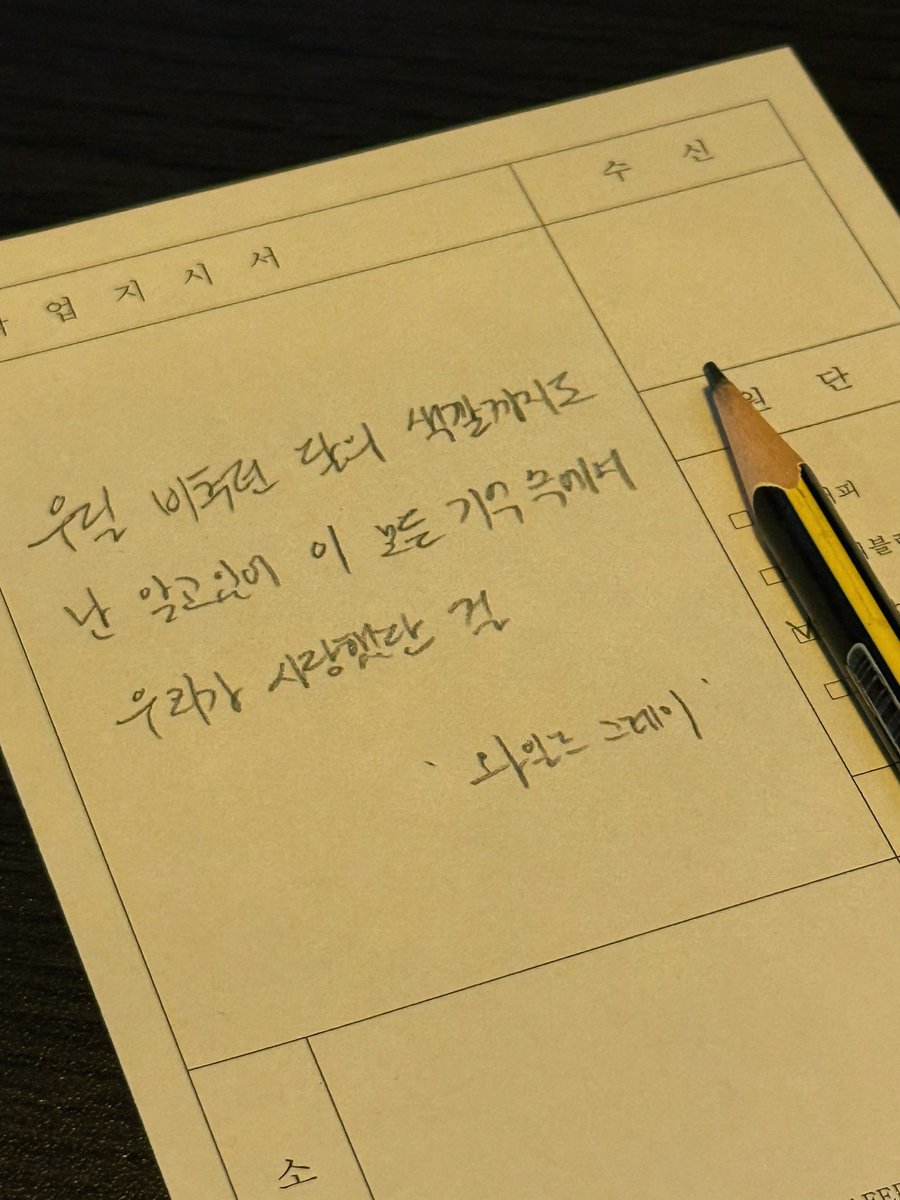 업 지 시 서
수 신
원 단
우릴 비추던 달의 색깔까지도
난 알고있어 이 모든 기억 속에서
우리가 사랑했단 걸
' 와일드 그레이 '
소